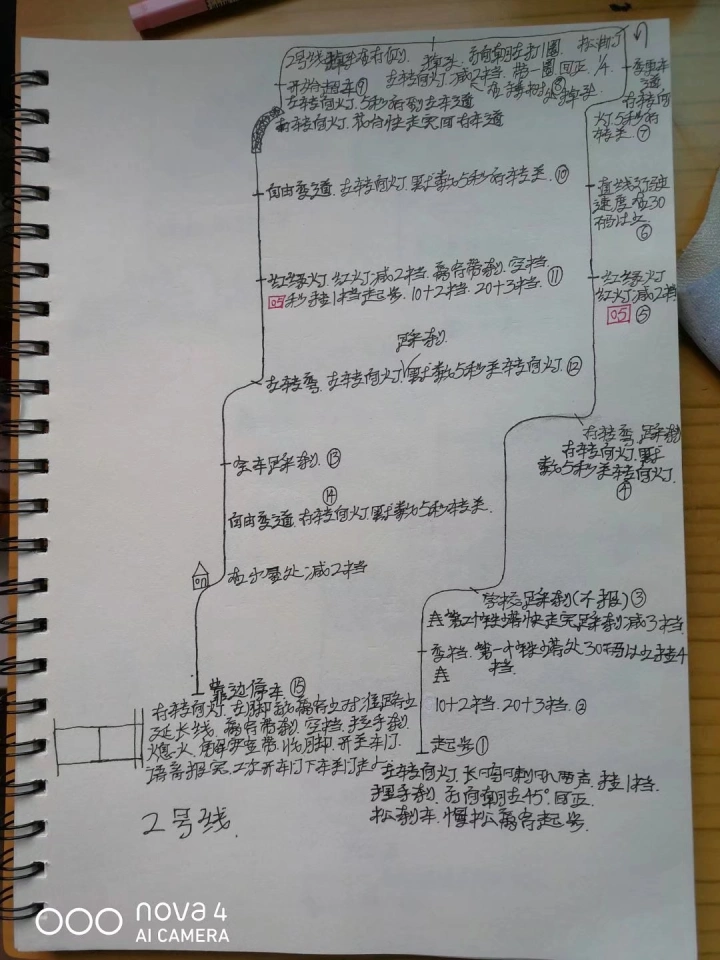 2号线掉头在右侧 掉头 方向朝左打1圈 松油门
开始超车⑨ 左转向灯 减2档 带一圈 回正 1/4
左转向灯 5秒后到左车道
右转向灯 快走完回右车道
变更车道
右转向灯5秒后
转关
⑦
自由变道 左转向灯 默数5秒后转关 ⑩
直线行驶
速度在30
码以上
⑥
红绿灯 红灯减2档 离合带刹 空档 ⑪
05秒挂1档起步 10+2档 20+3档
红绿灯
红灯减2档
05 ⑤
踩刹
左转弯 左转向灯 默数5秒关转向灯 ⑫
右转弯 踩刹
右转向灯 默
数5秒关转向灯
④
会车踩刹 ⑬
⑭
自由变道 右转向灯 默数5秒转关
在小屋处减2档
学校踩刹(不报) ③
第2个铁塔快走完踩刹 减3档
变档 第一个铁塔处30码以上挂4
档
10+2档 20+3档 ②
靠边停车 ⑮
右转向灯
延长线 离合带刹 空档 拉手刹
熄火 解安全带 开关车门
语音报完 开车门下车关门
起步①
左转向灯 长鸣喇叭两声 挂1档
手刹 方向朝左45° 回正
松刹车 慢松离合起步
2号线
nova 4
AI CAMERA